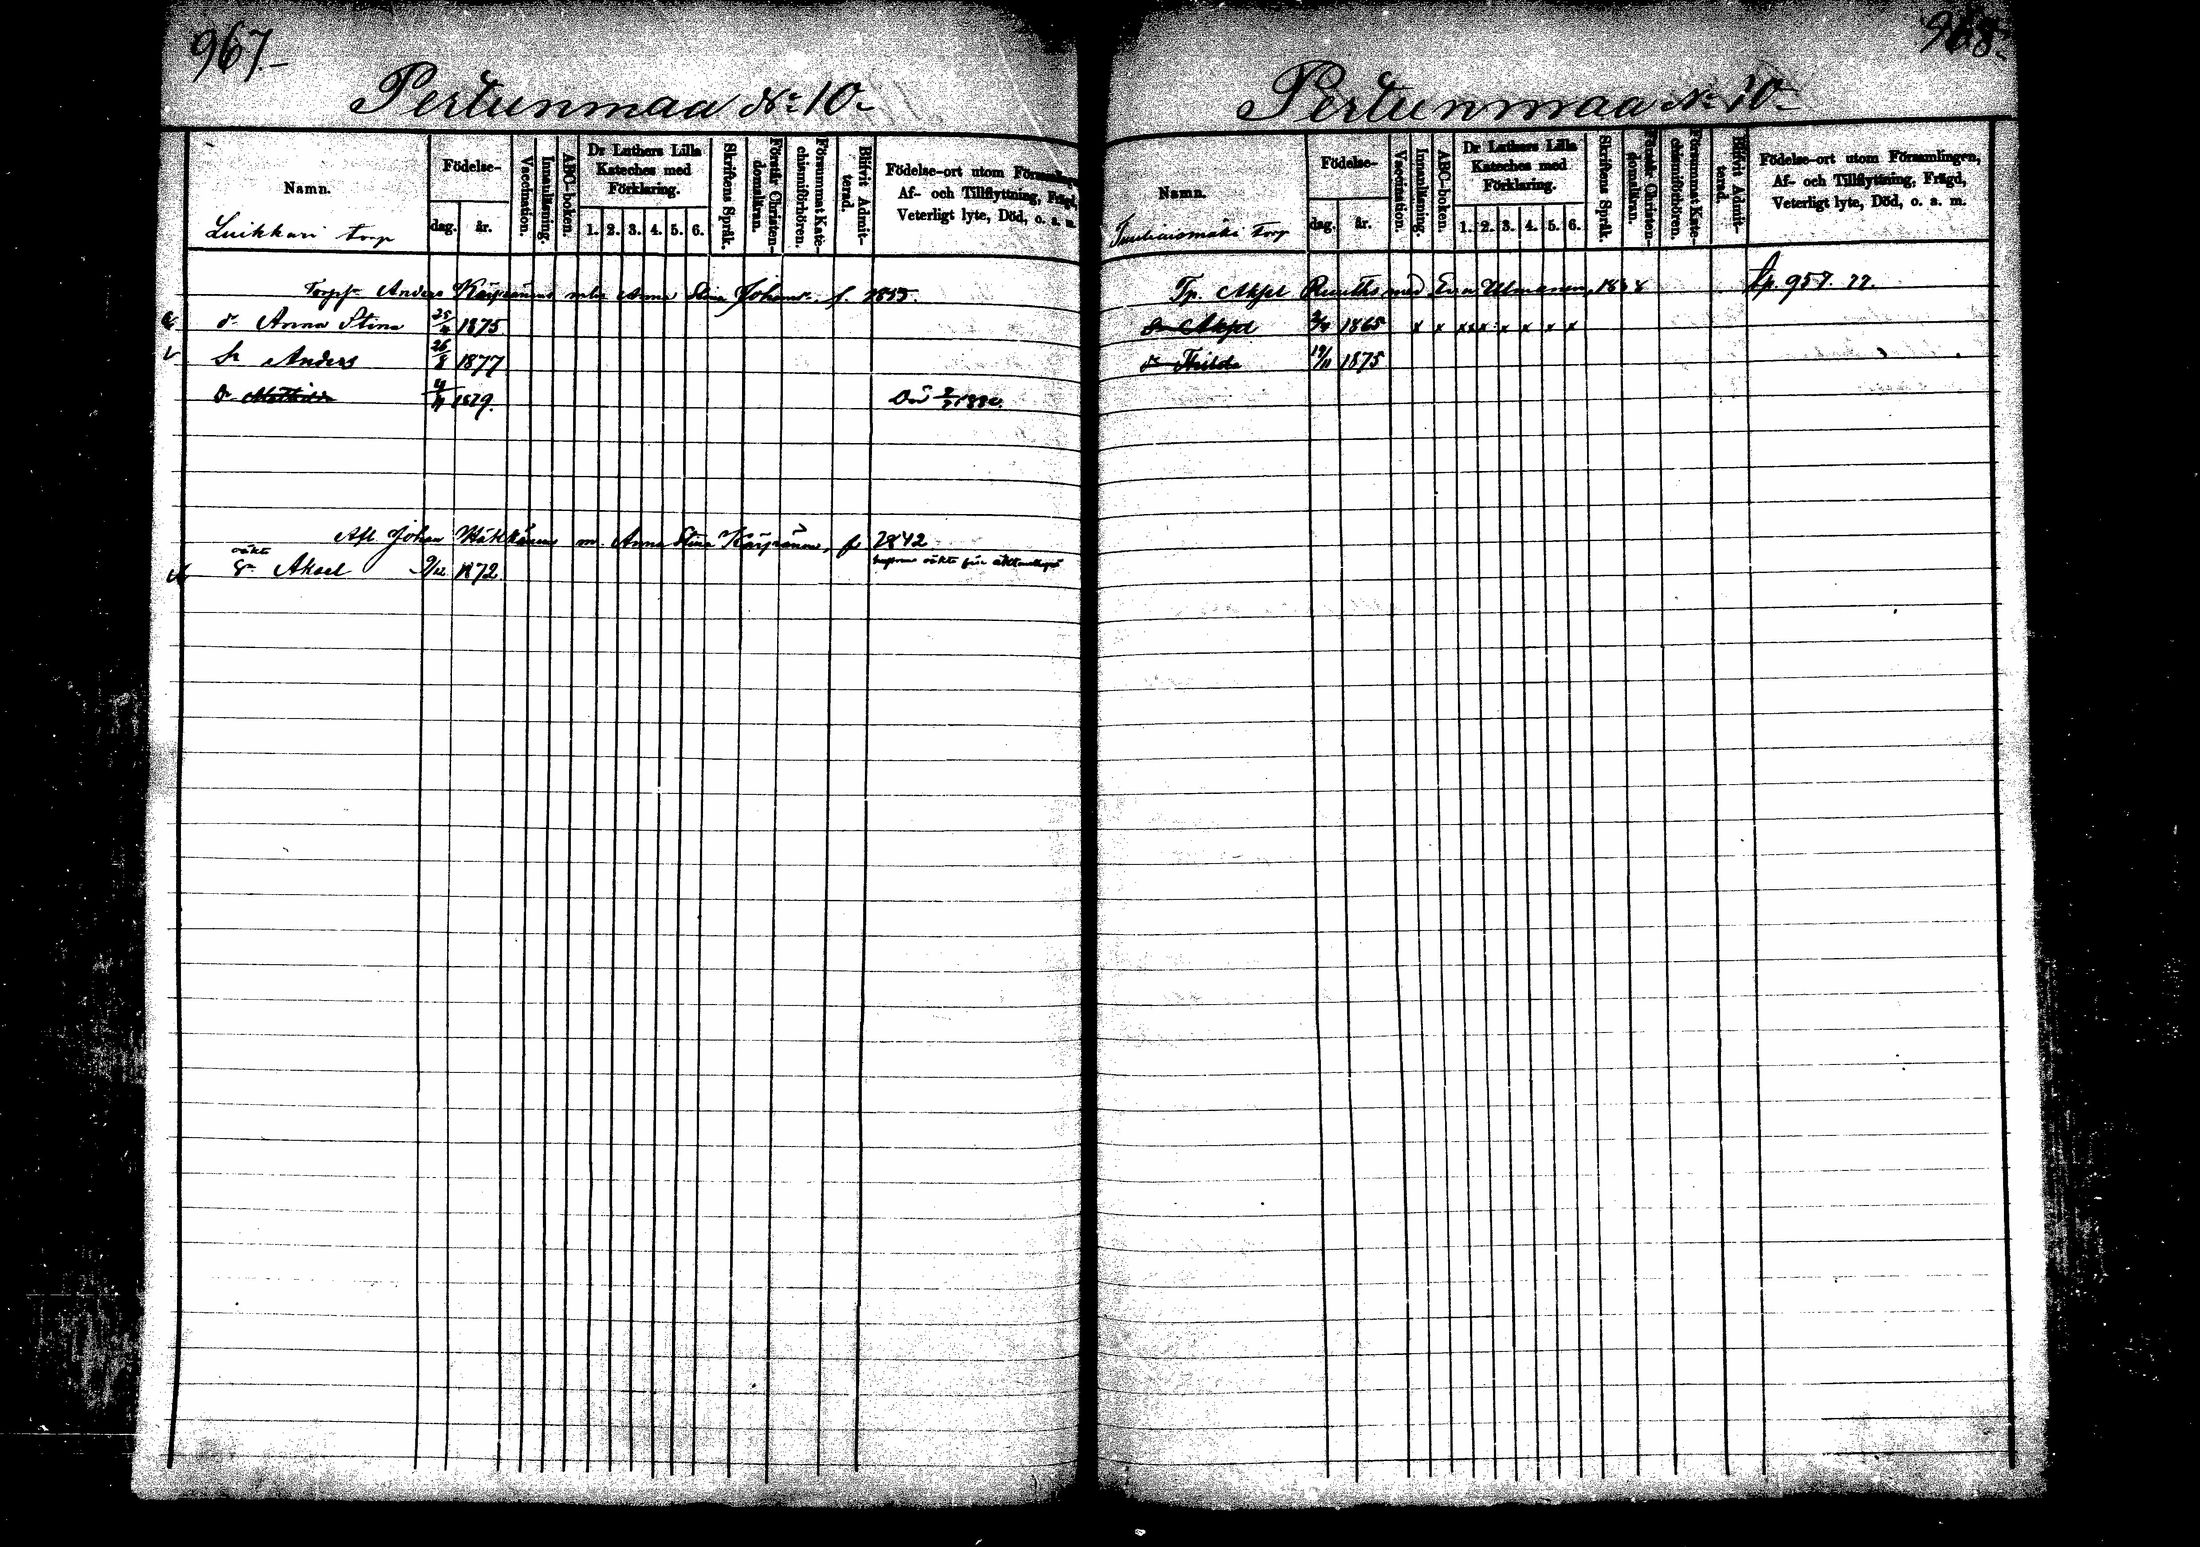 967.
Pertunmaa No 10
Namn.
Födelse-
dag.
år.
Vaccination.
Innanläsning.
ABC-boken.
Dr Luthers Lilla
Kateches med
Förklaring.
1. 2. 3. 4. 5. 6.
Skriftens Språk.
Förstår Christen-
domsläran.
Försummat Kate-
chismiförhören.
Blifvit Admit-
terad.
Födelse-ort utom Församling
Af- och Tillflyttning, Frägd,
Veterligt lyte, Död, o. a. m.
Luikkari torp
Torp. Anders Käpränens m Anna Stina f. 1855.
d. Anna Stina 25/4 1875
Sn Anders 26/8 1877
dr 1879. Död
Johan m. Anna Stina f 1842
oäkta
Sn Aksel 9/12 1872
968.
Pertunmaa No 10
Namn.
Födelse-
dag.
år.
Vaccination.
Innanläsning.
ABC-boken.
Dr Luthers Lilla
Kateches med
Förklaring.
1. 2. 3. 4. 5. 6.
Skriftens Språk.
Förstår Christen-
domsläran.
Försummat Kate-
chismiförhören.
Blifvit Admit-
terad.
Födelse-ort utom Församlingen,
Af- och Tillflyttning, Frägd,
Veterligt lyte, Död, o. a. m.
torp
Tp. Axel med Eva Ulmanen p. 957. 77.
Sn Axel 1865 x x x x x x x x x
dr Hilda 19/11 1875